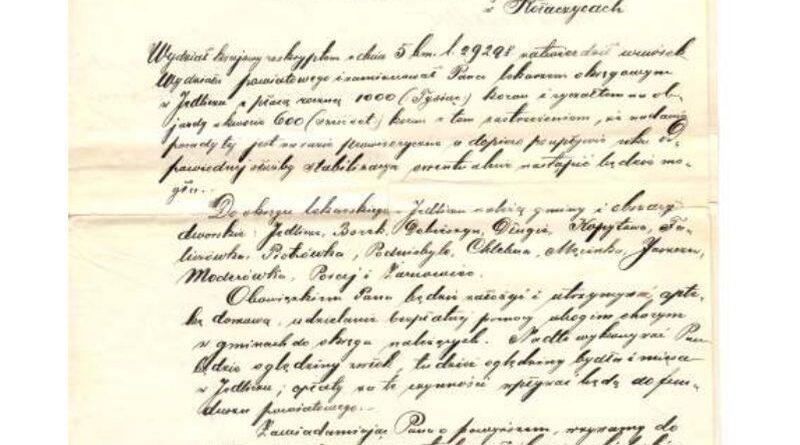 w Kołaczycach
Wydział krajowy reskryptem z dnia 5 bm. l. 29298 zatwierdził wniosek
Wydziału powiatowego i zamianował Pana lekarzem okręgowym
w Jedliczu z płacą roczną 1000 (Tysiąc) koron i ryczałtem na ob-
jazdy w kwocie 600 (sześćset) koron z tem zastrzeżeniem, że nadanie
posady tej jest na razie prowizoryczne a dopiero po upływie roku od-
powiedniej służby stabilizacya ewentualnie nastąpić będzie mo-
gła.-
Do okręgu lekarskiego Jedlicze należą gminy i obszary
dworskie: Jedlicze, Borek, Dobieszyn, Długie, Kopytowa,
Piotrówka, Podniebyle, Chlebna, Męcinka, Jaszczew,
Moderówka, Poręby i Żarnowiec.
Obowiązkiem Pana będzie założyć i utrzymywać apte-
kę domową, udzielanie bezpłatnej pomocy ubogim chorym
w gminach do okręgu należących. Nadto wykonywać Pan
będzie oględziny zwłok, tudzież oględziny bydła i mięsa
w Jedliczu; opłaty za te czynności wpływać będą do fun-
duszu powiatowego.-
Zawiadamiając Pana o powyższem, wzywamy do